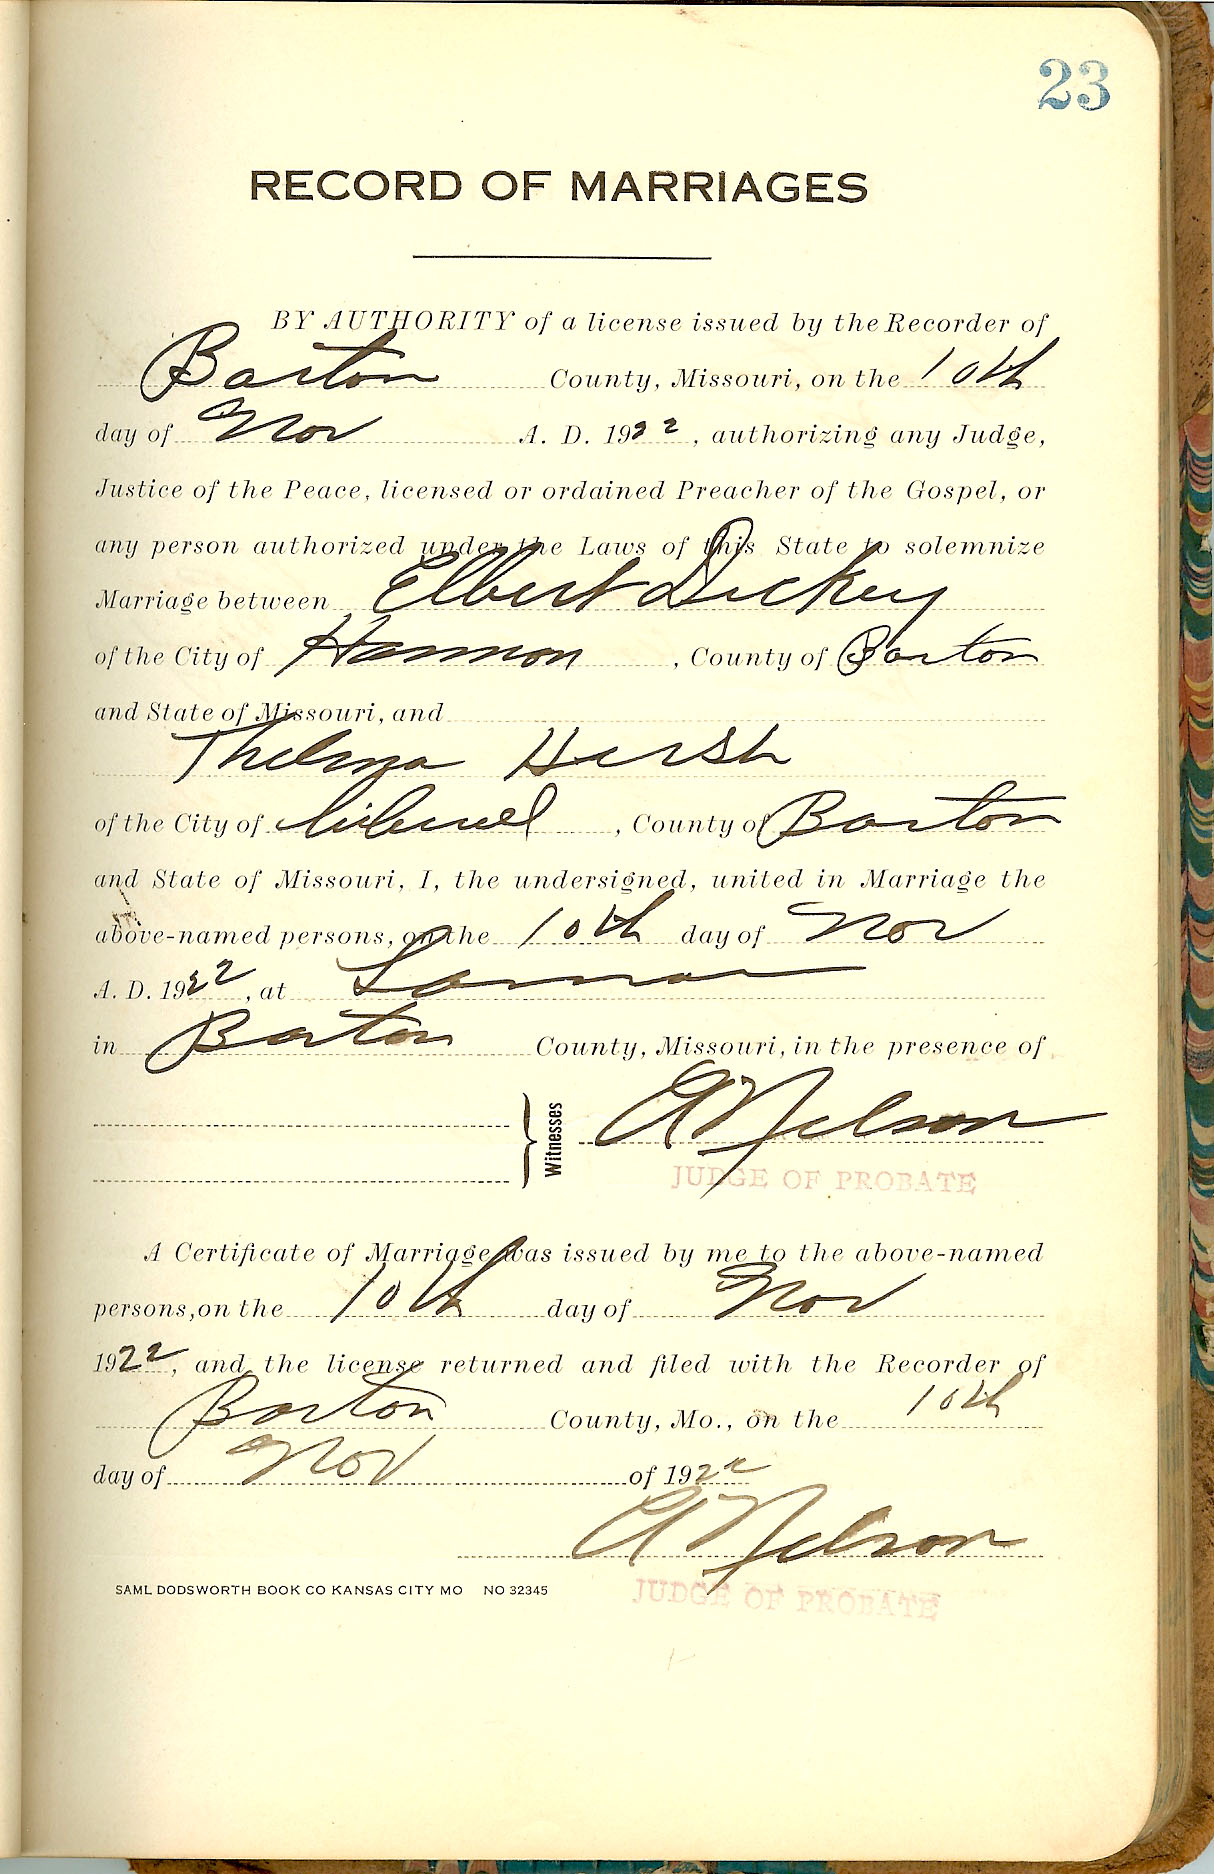 23
RECORD OF MARRIAGES
BY AUTHORITY of a license issued by the Recorder of
Barton County, Missouri, on the 10th
day of Nov A. D. 1922, authorizing any Judge,
Justice of the Peace, licensed or ordained Preacher of the Gospel, or
any person authorized under the Laws of this State to solemnize
Marriage between Elbert Dickey
of the City of Hannon, County of Barton
and State of Missouri, and
Thelma Hirsh
of the City of, County of Barton
and State of Missouri, I, the undersigned, united in Marriage the
above-named persons, on the 10th day of Nov
A. D. 1922, at Lamar
in Barton County, Missouri, in the presence of
Witnesses
A Nelson
JUDGE OF PROBATE
A Certificate of Marriage was issued by me to the above-named
persons, on the 10th day of Nov
1922, and the license returned and filed with the Recorder of
Barton County, Mo., on the 10th
day of Nov of 1922
A Nelson
SAML DODSWORTH BOOK CO KANSAS CITY MO NO 32345
JUDGE OF PROBATE